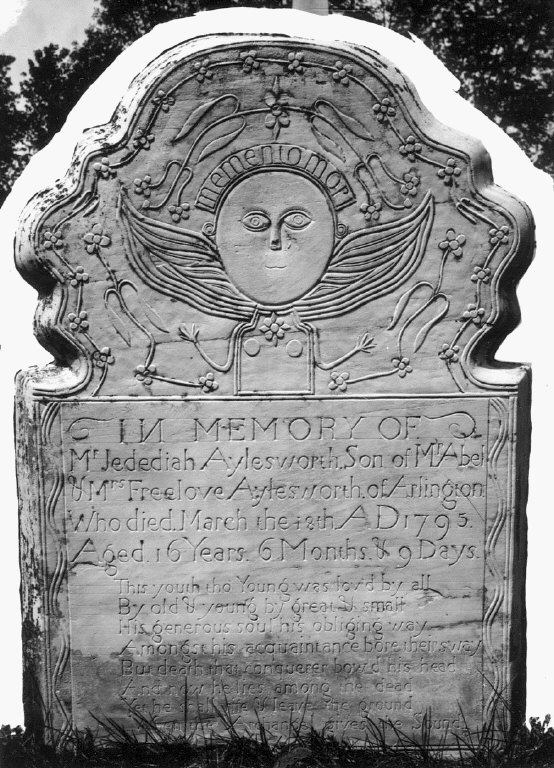 memento mori
IN MEMORY OF
Mr Jedediah Aylesworth, Son of Mr Abel
& Mrs Freelove Aylesworth, of Arlington
Who died, March the 12th A.D 1795.
Aged, 16 Years. 6 Months. & 9 Days.
This youth tho' Young was lov'd by all
By old & young by great & small
His generous soul his obliging way
Amongst his acquaintance bore their sway
But death that conquerer bow'd his head
And now he lies among the dead
Yet he & leave the ground
gives the Sound